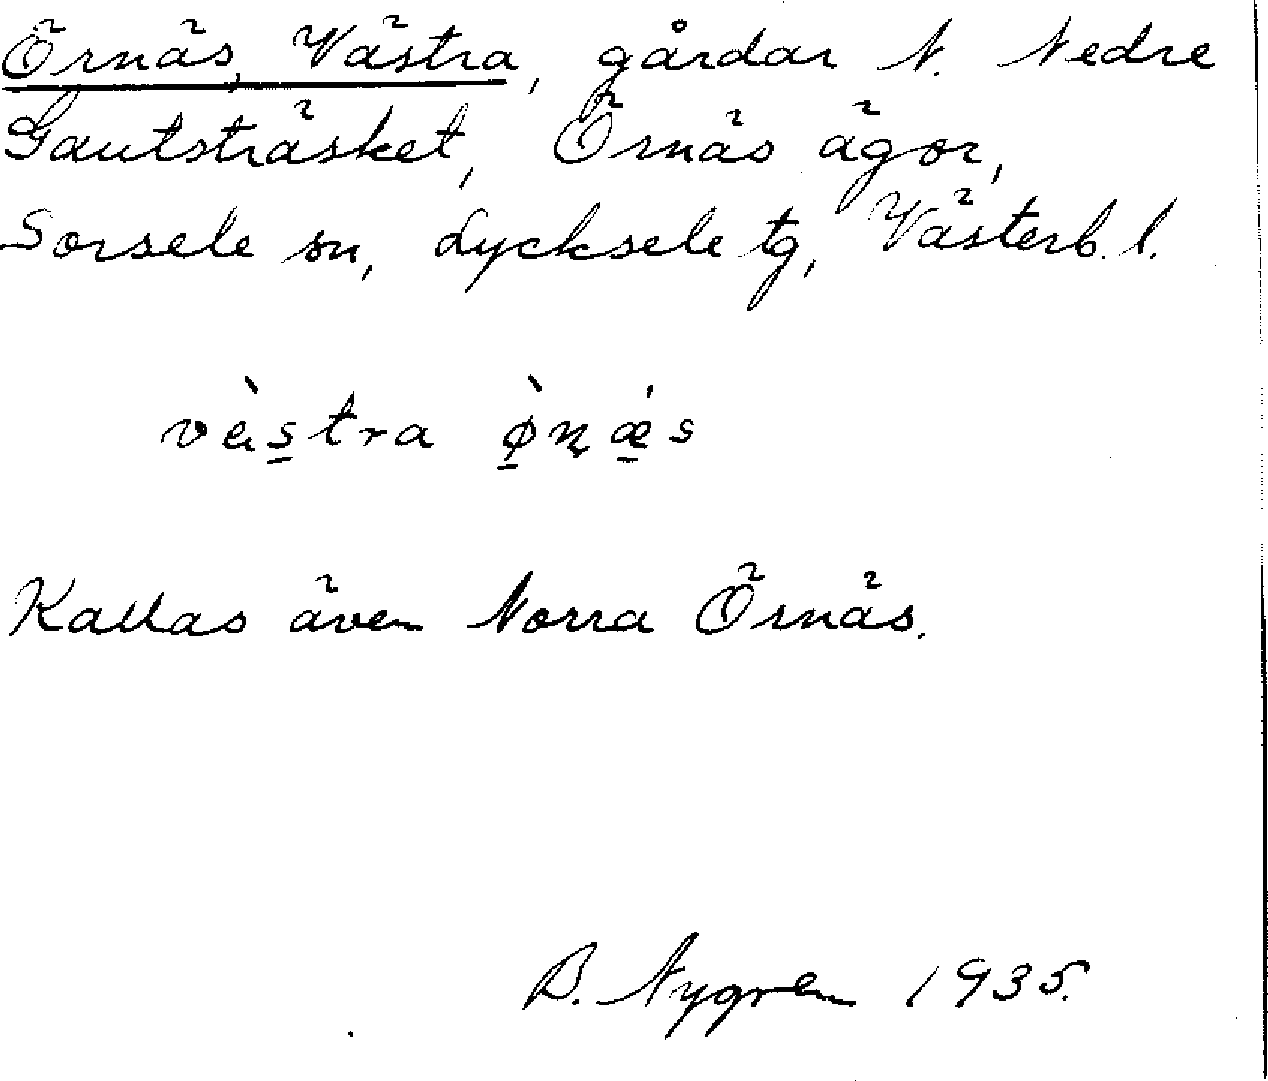 Örnäs, Västra, gårdar N. Nedre
Gautsträsket, Örnäs ägor,
Sorsele sn, Lycksele tg, Västerb. l.
vὲs̠tra ø̠̀ɳǽ̠s
Kallas även Norra Örnäs.
B. Nygren 1935.